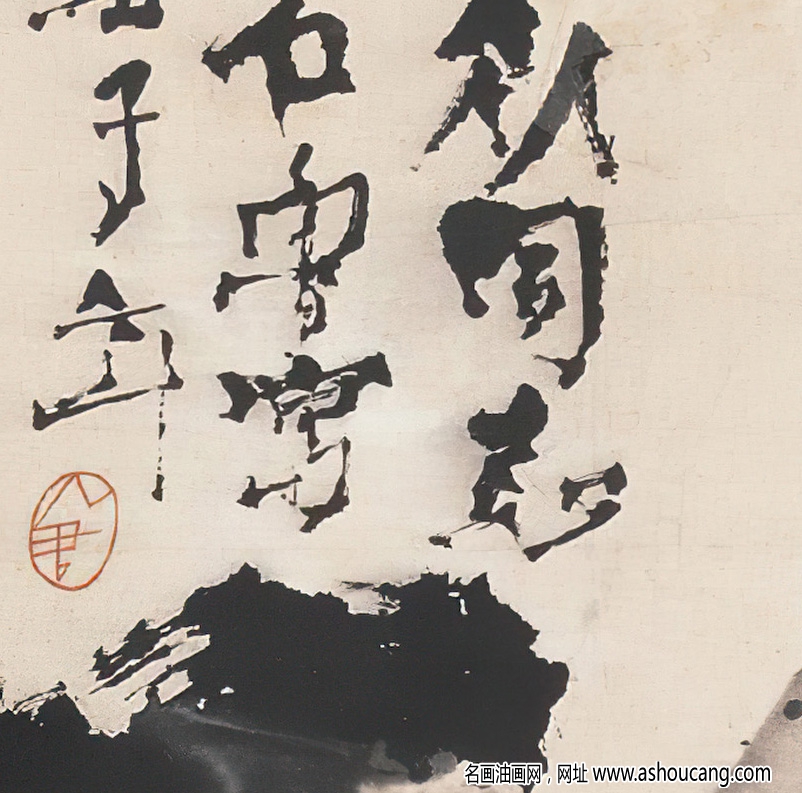 同志
石魯寫
子年
名画油画网，网址 www.ashoucang.com